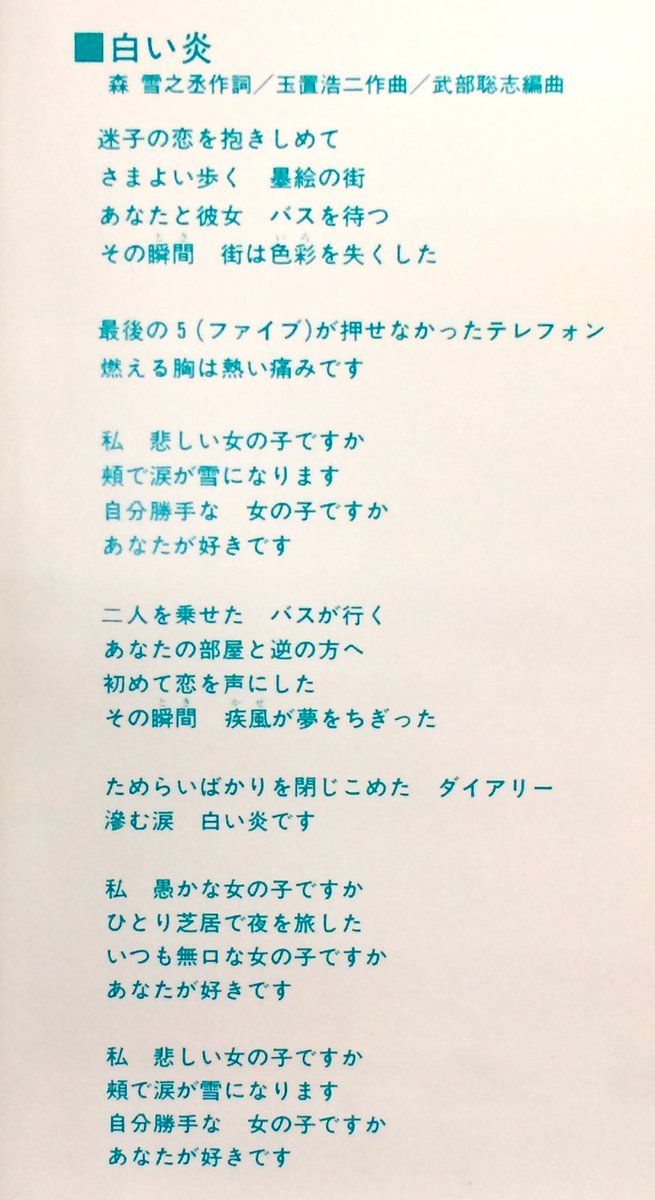 ■白い炎
森 雪之丞作詞／玉置浩二作曲／武部聡志編曲
迷子の恋を抱きしめて
さまよい歩く　墨絵の街
あなたと彼女　バスを待つ
とき　いろ
その瞬間　街は色彩を失くした
最後の5(ファイブ)が押せなかったテレフォン
燃える胸は熱い痛みです
私　悲しい女の子ですか
頰で涙が雪になります
自分勝手な　女の子ですか
あなたが好きです
二人を乗せた　バスが行く
あなたの部屋と逆の方へ
初めて恋を声にした
とき　かぜ
その瞬間　疾風が夢をちぎった
ためらいばかりを閉じこめた　ダイアリー
滲む涙　白い炎です
私　愚かな女の子ですか
ひとり芝居で夜を旅した
いつも無口な女の子ですか
あなたが好きです
私　悲しい女の子ですか
頰で涙が雪になります
自分勝手な　女の子ですか
あなたが好きです